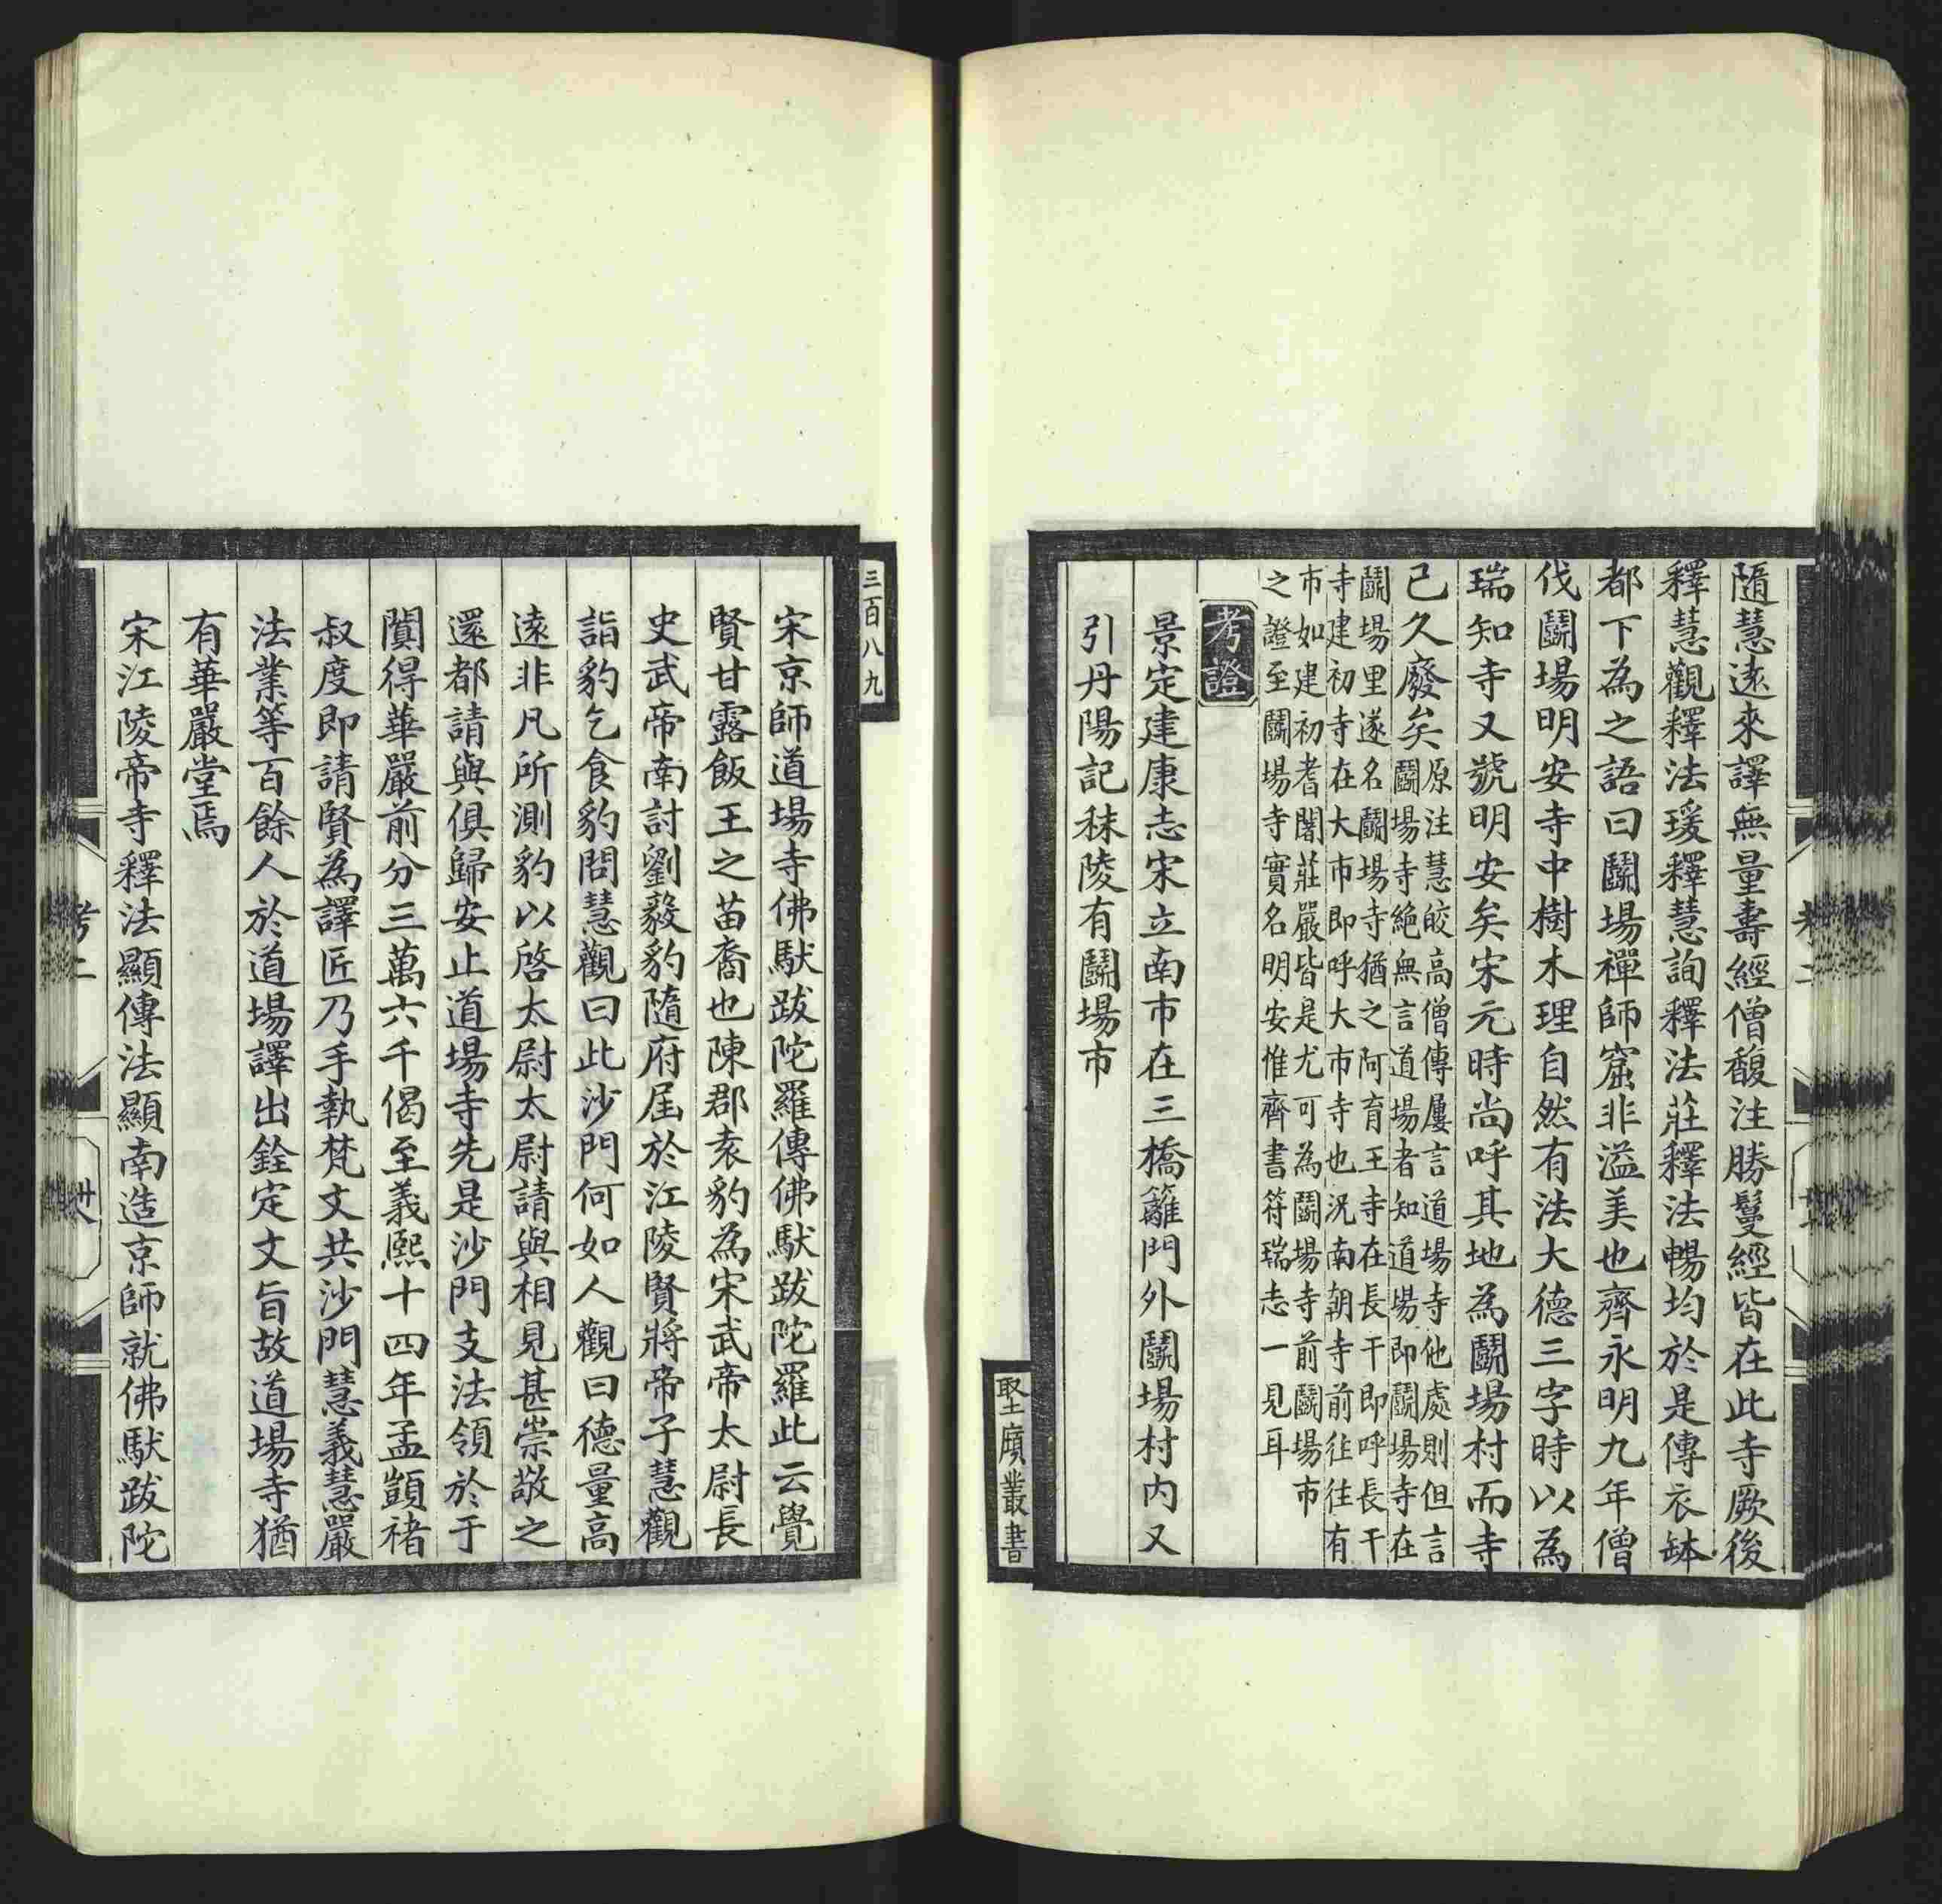 隨慧遠來譯無量壽經僧馥注勝鬘經皆在此寺厥後
釋慧觀釋法瑗釋慧詢釋法莊釋法暢均於是傳衣缽
都下為之語曰鬭場禪師窟非溢美也齊永明九年僧
伐鬭場明安寺中樹木理自然有法大德三字時以為
瑞知寺又號明安矣宋元時尚呼其地為鬭場村而寺
己久廢矣
原注慧皎高僧傳屢言道場寺他處則但言
鬭場寺絶無言道場者知道場即鬭場寺在
鬭場里遂名鬭場寺猶之阿育王寺在長干即呼長干
寺建初寺在大市即呼大市寺也況南朝寺前往往有
市如建初耆闍莊嚴皆是尤可為鬭場寺前鬭場市
之證至鬭場寺實名明安惟齊書符瑞志一見耳
考證
景定建康志宋立南市在三橋籬門外鬭場村内又
引丹陽記秣陵有鬭場市
聖廎叢書
三百八九
宋京師道場寺佛馱跋陀羅傳佛馱跋陀羅此云覺
賢甘露飯王之苗裔也陳郡袁豹為宋武帝太尉長
史武帝南討劉毅豹隨府屆於江陵賢將弟子慧觀
詣豹乞食豹問慧觀曰此沙門何如人觀曰德量高
遠非凡所測豹以啓太尉太尉請與相見甚崇敬之
還都請與俱歸安止道場寺先是沙門支法領於于
闐得華嚴前分三萬六千偈至義熙十四年孟顗褚
叔度即請賢為譯匠乃手執梵文共沙門慧義慧嚴
法業等百餘人於道場譯出銓定文旨故道場寺猶
有華嚴堂焉
宋江陵帝寺釋法顯傳法顯南造京師就佛馱跋陀
考二